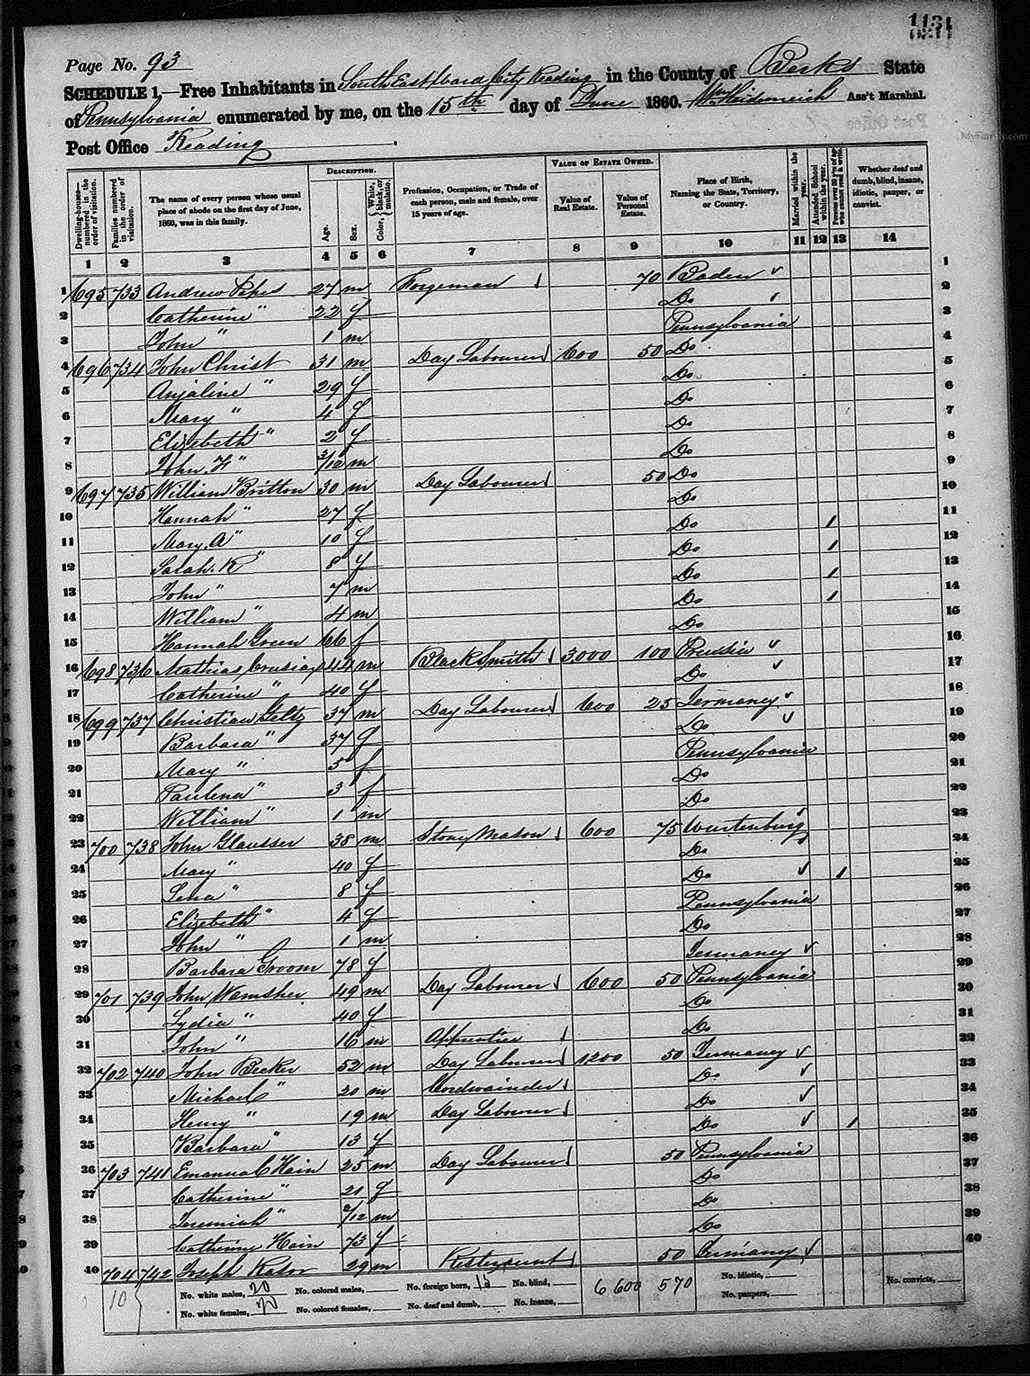 1131
Page No. 93
SCHEDULE 1.—Free Inhabitants in South East Ward City Reading in the County of Berks State
of Pennsylvania enumerated by me, on the 15th day of June 1860. Wm Ass't Marshal.
Post Office Reading
Dwelling-houses—numbered in the order of visitation. Families numbered in the order of visitation. The name of every person whose usual place of abode on the first day of June, 1860, was in this family. DESCRIPTION. Age. Sex. Color, White, black, or mulatto. Profession, Occupation, or Trade of each person, male and female, over 15 years of age. VALUE OF ESTATE OWNED. Value of Real Estate. Value of Personal Estate. Place of Birth, Naming the State, Territory, or Country. Married within the year. Attended School within the year. Persons over 20 y'rs of age who cannot read & write. Whether deaf and dumb, blind, insane, idiotic, pauper, or convict.
1 2 3 4 5 6 7 8 9 10 11 12 13 14
1 695 733 Andrew 27 m Forgeman 70 Baden 1
2 Catherine " 22 f Do 2
3 John " 1 m Pennsylvania 3
4 696 734 John Christ 31 m Day Labourer 600 50 Do 4
5 Anjaline " 29 f Do 5
6 Mary " 4 f Do 6
7 Elizebeth " 2 f Do 7
8 John H " 3/12 m Do 8
9 697 735 William Britton 30 m Day Labourer 50 Do 9
10 Hannah " 27 f Do 10
11 Mary A " 10 f Do 1 11
12 Sarah K " 8 f Do 1 12
13 John " 7 m Do 1 13
14 William " 4 m Do 1 14
15 Hannah Green 66 f Do 15
16 698 736 Mathias 44 m Black Smith 3000 100 Prussia 16
17 Catherine " 40 f Do 17
18 699 737 Christian Geltz 37 m Day Labourer 600 25 Jermaney 18
19 Barbara " 37 f Do 19
20 Mary " 5 f Pennsylvania 20
21 Paulena " 3 f Do 21
22 William " 1 m Do 22
23 700 738 John Glausser 38 m Stone Mason 600 75 Wurtenburg 23
24 Mary " 40 f Do 24
25 Lena " 8 f Do 1 25
26 Elizebeth " 4 f Pennsylvania 26
27 John " 1 m Do 27
28 Barbara Groom 78 f Jermaney 28
29 701 739 John Wamsher 49 m Day Labourer 600 50 Pennsylvania 29
30 Lydia " 40 f Do 30
31 John " 16 m Apprentice Do 31
32 702 740 John Becker 52 m Day Labourer 1200 50 Jermaney 32
33 Michael " 20 m Cordwainder Do 33
34 Henry " 19 m Day Labourer Do 34
35 Barbara " 13 f Do 1 35
36 703 741 Emanuel Hain 25 m Day Labourer 50 Pennsylvania 36
37 Catherine " 21 f Do 37
38 Jeremiah " 2/12 m Do 38
39 Catherine Hain 73 f Do 39
40 704 742 Joseph 29 m 50 Jermaney 40
10 No. white males, 20 No. colored males, No. foreign born, 15 No. blind, 6600 570 No. idiotic, No. convicts,
No. white females, 20 No. colored females, No. deaf and dumb, No. insane, No. paupers,